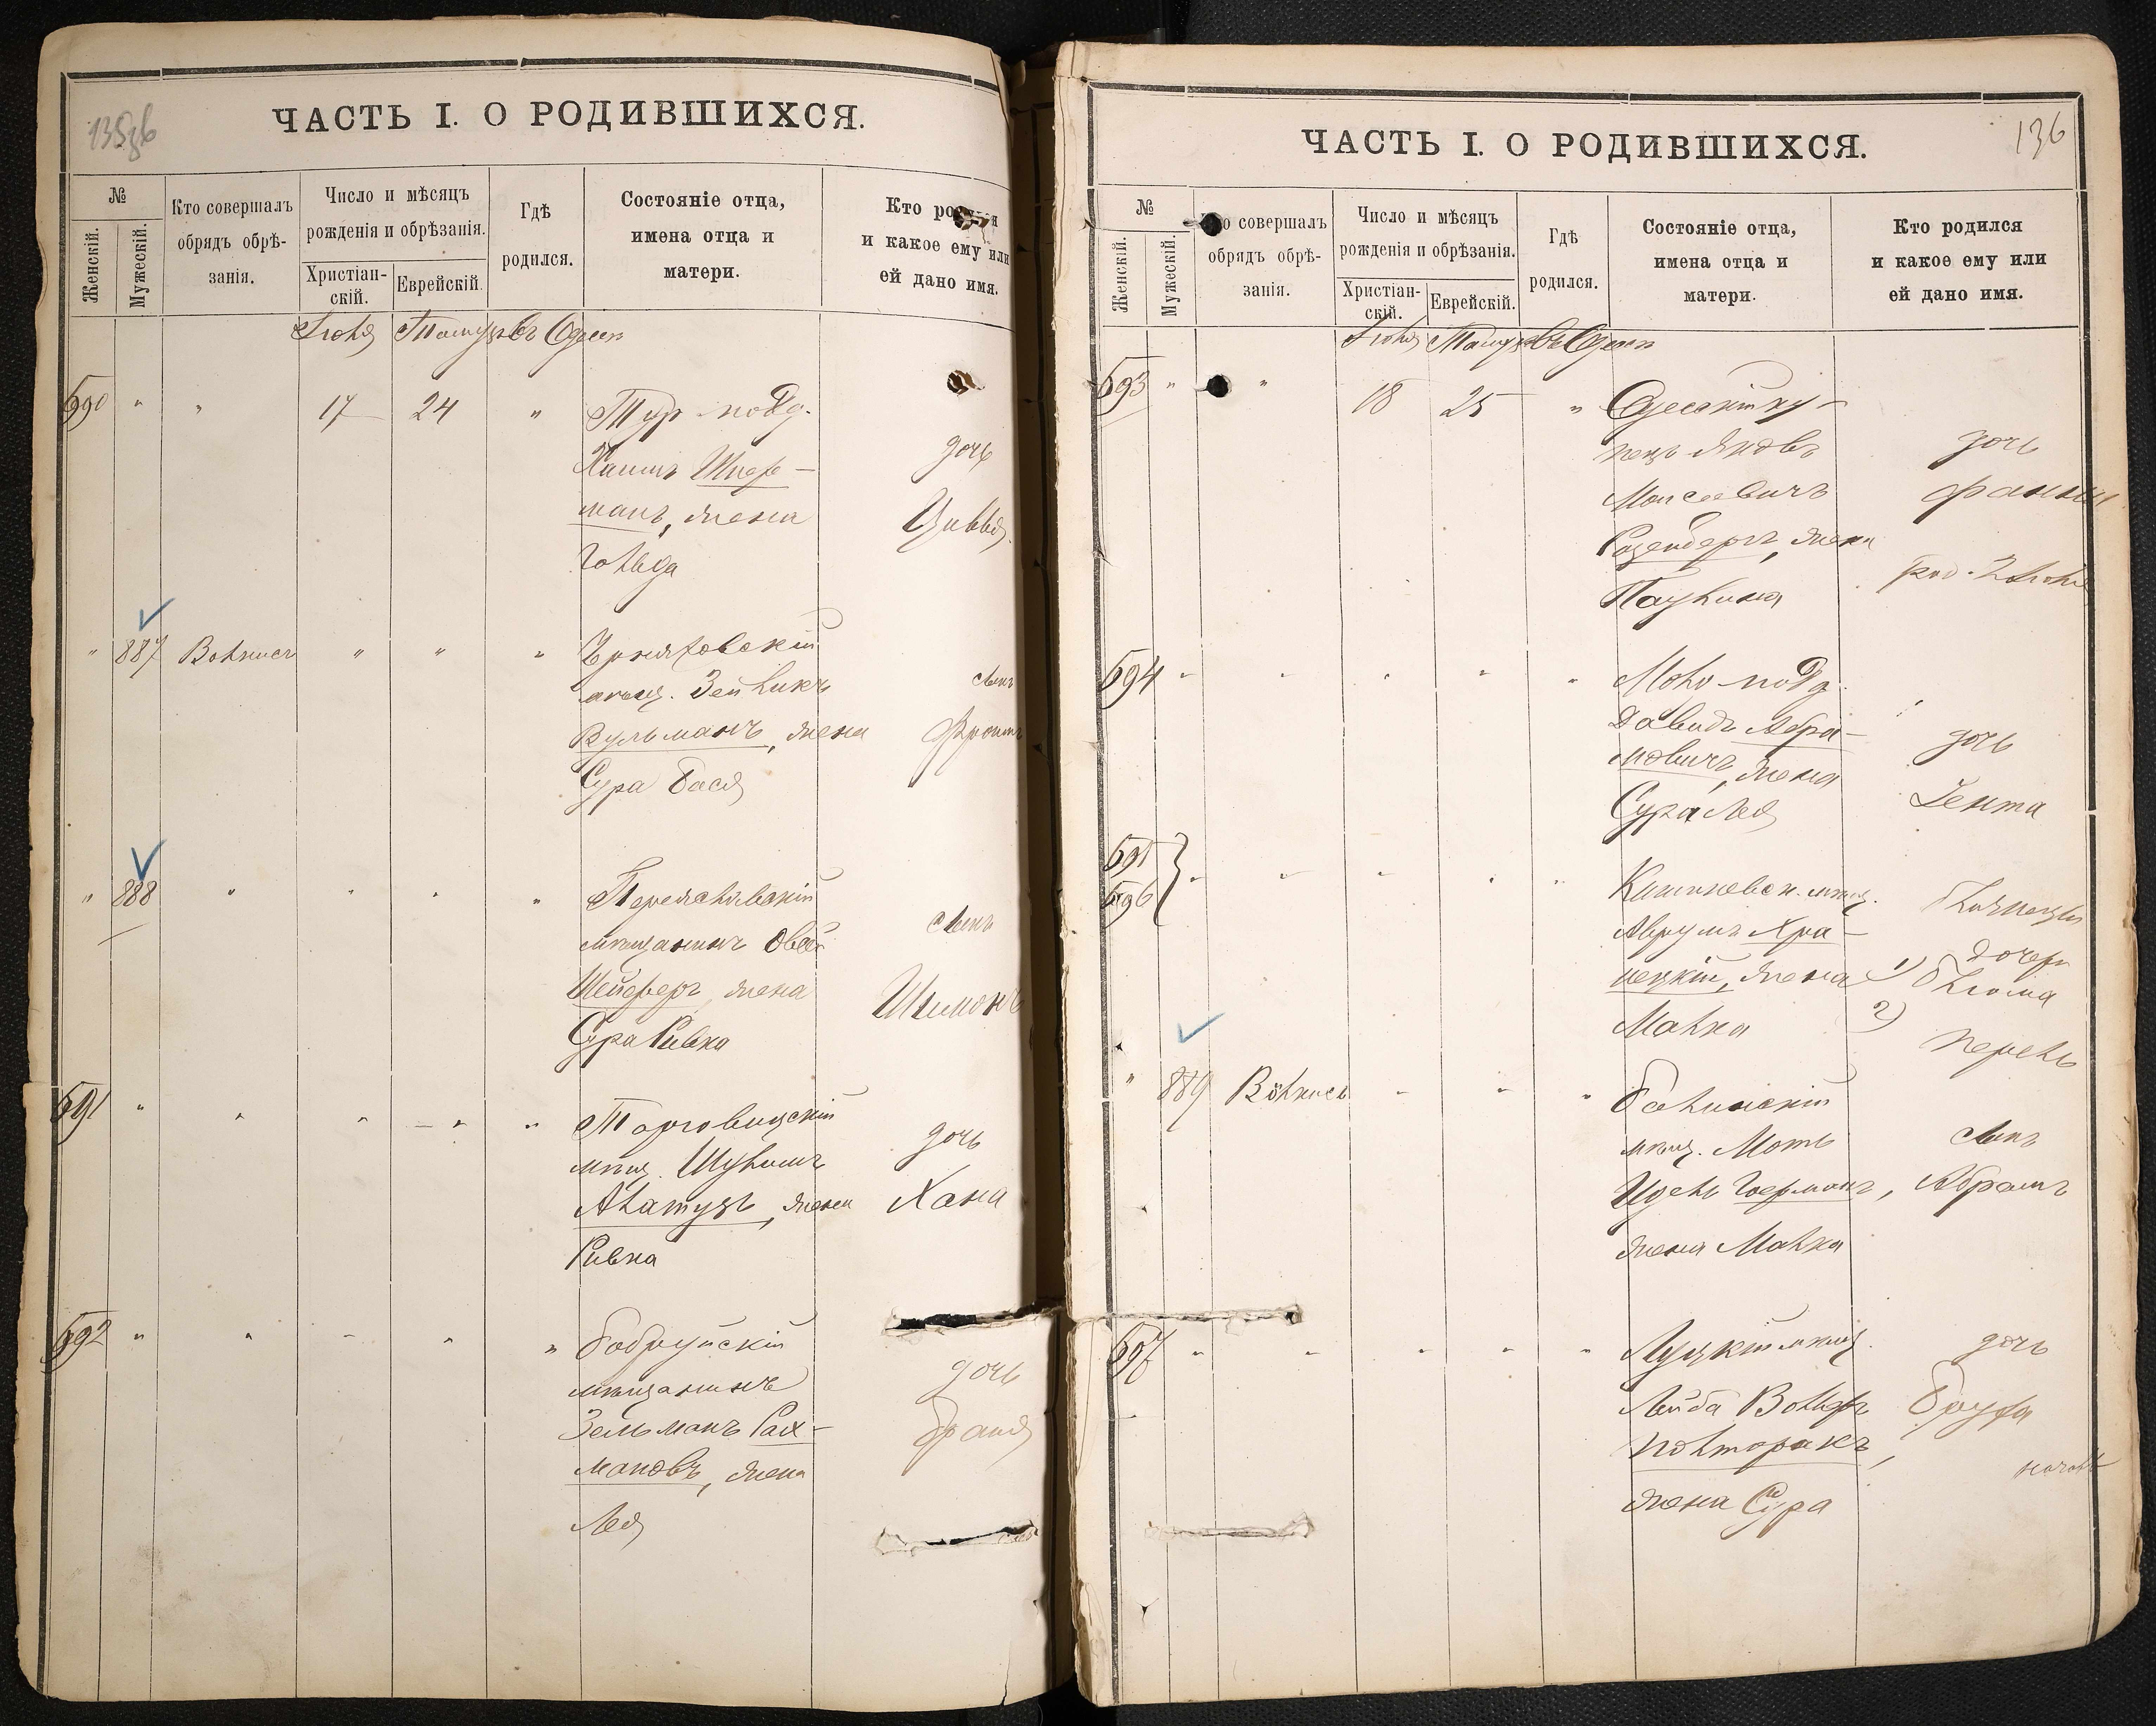 ЧАСТЬ I. О РОДИВШИХСЯ.
№
Женскій.
Мужескій.
Кто совершалъ
обрядъ обрѣ-
занія.
Число и мѣсяцъ
рожденія и обрѣзанія.
Христіан-
скій.
Еврейскій.
Гдѣ
родился.
Состояніе отца,
имена отца и
матери.
Кто
и какое ему или
ей дано имя.
Іюля Тамузъ Въ Одессѣ
590 " " 17 24 " Тур. подд.
Хаимъ
манъ, жена
Гольда
дочь
Цивья
" 887 " " "
мѣщ. Зейликъ
Вульманъ, жена
Сура Бася
сынъ
Фроимъ
" 888 " " " " Переяславскій
мѣщанинъ Овсей
Шейферъ, жена
Сура Ривка
сынъ
Шимонъ
591 " " " " " Торговицскій
мѣщ. Шулимъ
жена
Ривка
дочь
Хана
592 " " " " " Бобруйскій
мѣщанинъ
Зельманъ Рах-
мановъ, жена
Лея
дочь
Браня
ЧАСТЬ I. О РОДИВШИХСЯ.
136
№
Женскій.
Мужескій.
совершалъ
обрядъ обрѣ-
занія.
Число и мѣсяцъ
рожденія и обрѣзанія.
Христіан-
скій.
Еврейскій.
Гдѣ
родился.
Состояніе отца,
имена отца и
матери.
Кто родился
и какое ему или
ей дано имя.
Іюля Тамузъ Въ Одессѣ
593 " " 18 25 " Одесскій ку-
пецъ Яковъ
Моисеевичъ
Розенбергъ, жена
Паулина
дочь
Фанни
род. 2 Іюля
594 " " " " " подд.
Давидъ Абра-
мовичъ, жена
Сура Лея
дочь
Гента
595
596 } " " " " " Кишиневск. мѣщ.
Аврумъ Хра-
пецкій, жена
Малка
близнецы
дочери
1) Блюма
2) Перель
" 889 " " "
мѣщ. Моть
Идель Германъ,
жена Малка
сынъ
Абрамъ
597 " " " " " Луцкій мѣщ.
Лейба Вольфъ
Полторакъ,
жена Сура
дочь
Бруха